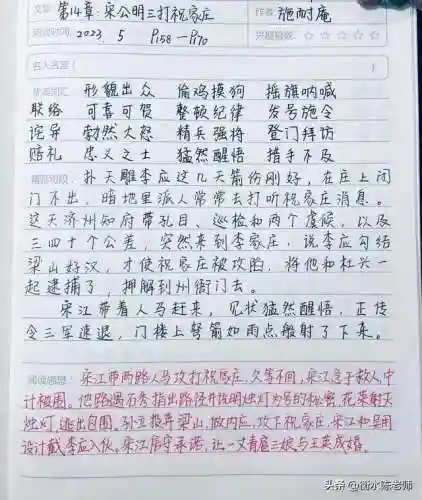 文章: 第14章:宋公明三打祝家庄 作者: 施耐庵
阅读时间: 2023. 5 P158-P170 兴趣指数: ☆☆☆☆☆
名人名言
好词词汇: 形貌出众 偷鸡摸狗 摇旗呐喊
联络 可喜可贺 整顿纪律 发号施令
诧异 勃然大怒 精兵强将 登门拜访
赔礼 忠义之士 猛然醒悟 措手不及
精彩句段: 扑天雕李应这几天箭伤刚好,在庄上闭
门不出,暗地里派人常常去打听祝家庄消息。
这天济州知府带孔目、巡检和两个虞候,以及
三四十个公差,突然来到李家庄,说李应勾结
梁山好汉,才使祝家庄被攻陷,将他和杜兴一
起逮捕了,押解到州衙门去。
宋江带着人马赶来,见状猛然醒悟,正传
令三军速退,门楼上弩箭如雨点般射了下来。
阅读感想: 宋江带两路人马攻打祝家庄,久等不回,宋江急于救人中
计被围。他路遇石秀指出路径并说明烛灯为号的秘密,花荣射灭
烛灯,逃出包围,孙立投奔梁山,做内应,攻下祝家庄,宋江和吴用
设计截李应入伙。宋江信守承诺,让一丈青扈三娘与王英成婚。
头条 @衡水陈老师